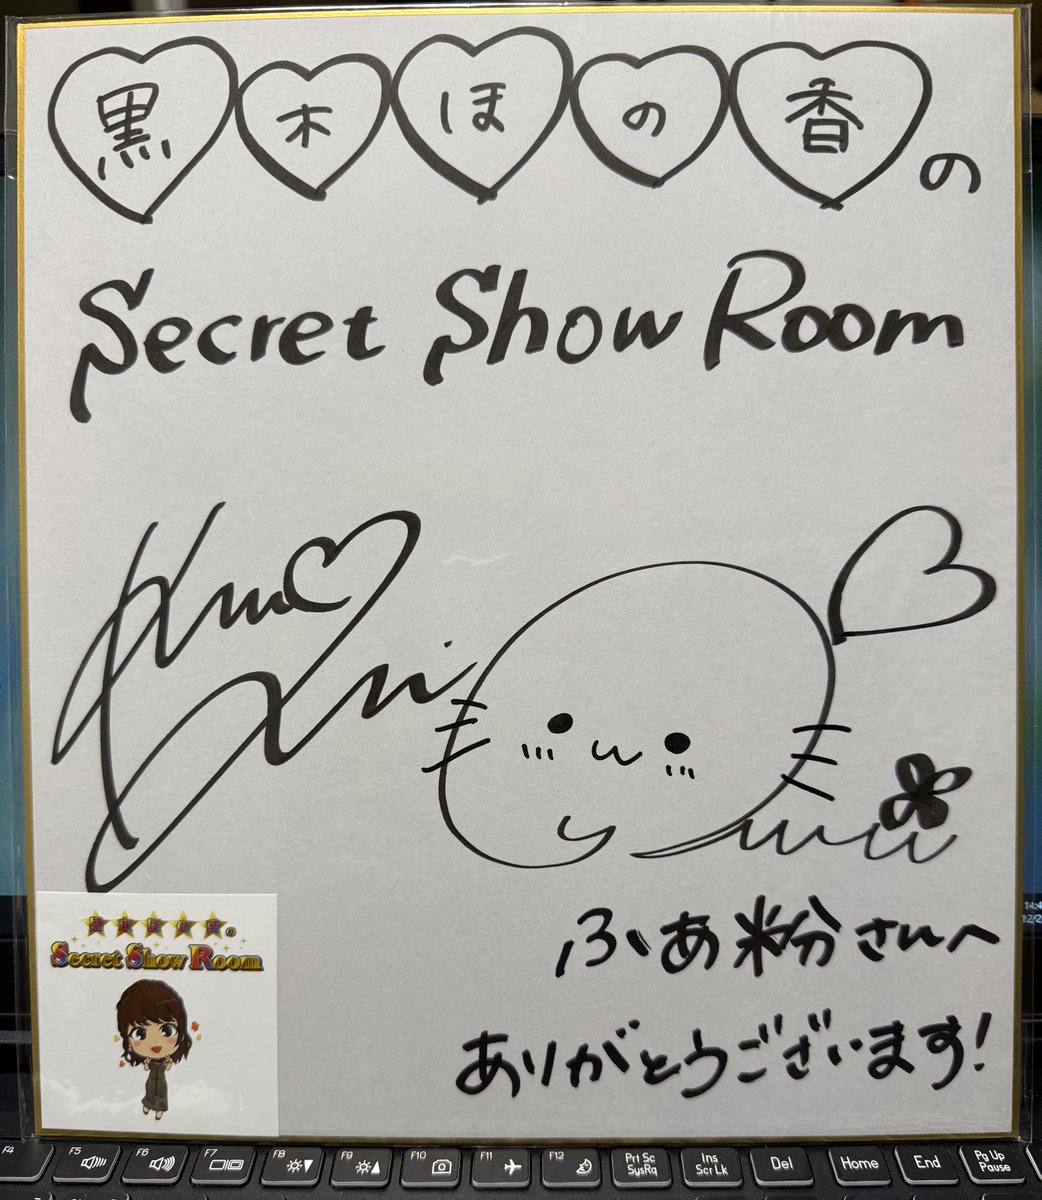 黒木ほの香の
Secret Show Room
ふぁ粉さんへ
ありがとうございます!
黒木ほの香の
Secret Show Room
F4
F5
F6
F7
F8
F9
F10
F11
F12
Prt Sc
SysRq
Ins
Scr Lk
Del
Home
End
Pg Up
Pause